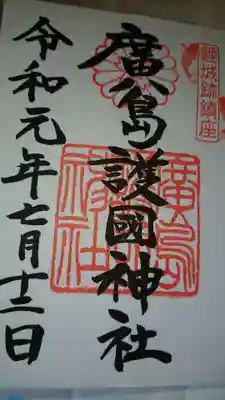 鯉城跡鎮座
廣島護國神社
廣島
護國
神社
令和元年七月十二日